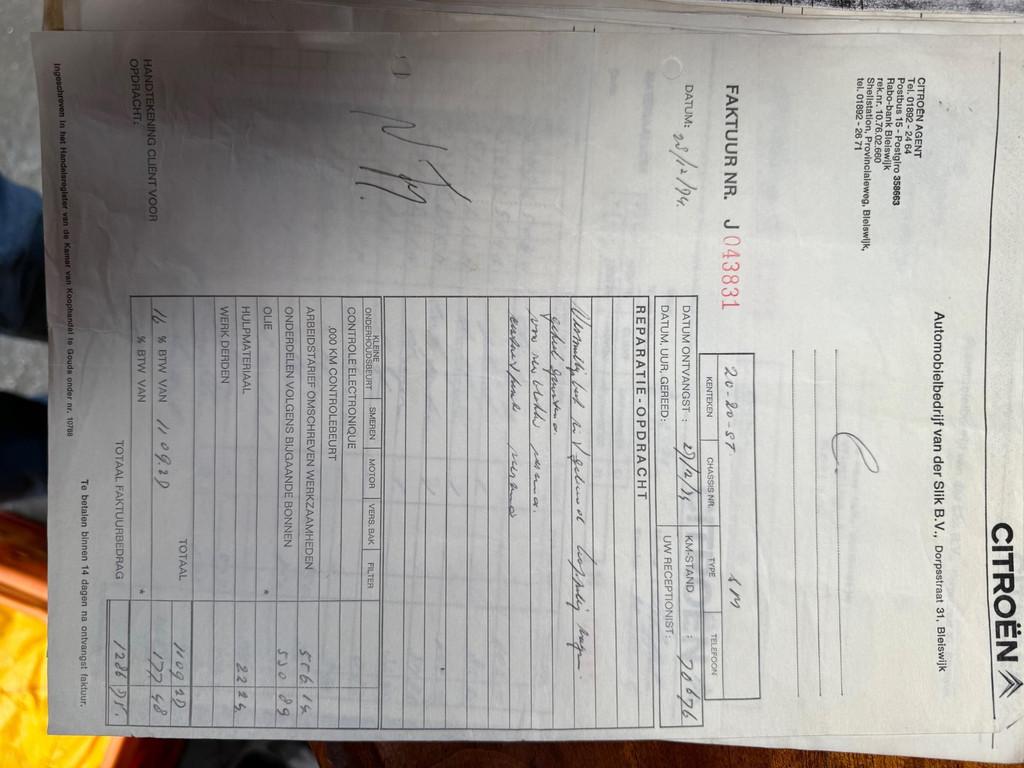 CITROËN
Automobielbedrijf van der Slik B.V., Dorpsstraat 31, Bleiswijk
CITROËN AGENT
Tel. 01892 - 24 64
Postbus 15 - Postgiro 358663
Rabo-bank Bleiswijk
rek.nr. 10.76.02.660
Shellstation, Provincialeweg, Bleiswijk,
tel. 01892 - 28 71
FAKTUUR NR. J 043831
20-80-ST
KENTEKEN CHASSIS NR. TYPE TELEFOON
DATUM: 23/12/94.
DATUM ONTVANGST: KM-STAND : 70676
DATUM, UUR, GEREED: UW RECEPTIONIST:
REPARATIE-OPDRACHT
KLEINE ONDERHOUDSBEURT SMEREN MOTOR VERS. BAK FILTER
CONTROLE ELECTRONIQUE
.000 KM CONTROLEBEURT
ARBEIDSTARIEF OMSCHREVEN WERKZAAMHEDEN 556 14
ONDERDELEN VOLGENS BIJGAANDE BONNEN 530 89
OLIE *
HULPMATERIAAL 22 24
WERK DERDEN
TOTAAL 1109 20
16 % BTW VAN 1109.20 177 48
% BTW VAN *
HANDTEKENING CLIENT VOOR
OPDRACHT:
TOTAAL FAKTUURBEDRAG 1286 75.
Te betalen binnen 14 dagen na ontvangst faktuur.
Ingeschreven in het Handelsregister van de Kamer van Koophandel te Gouda onder nr. 10788